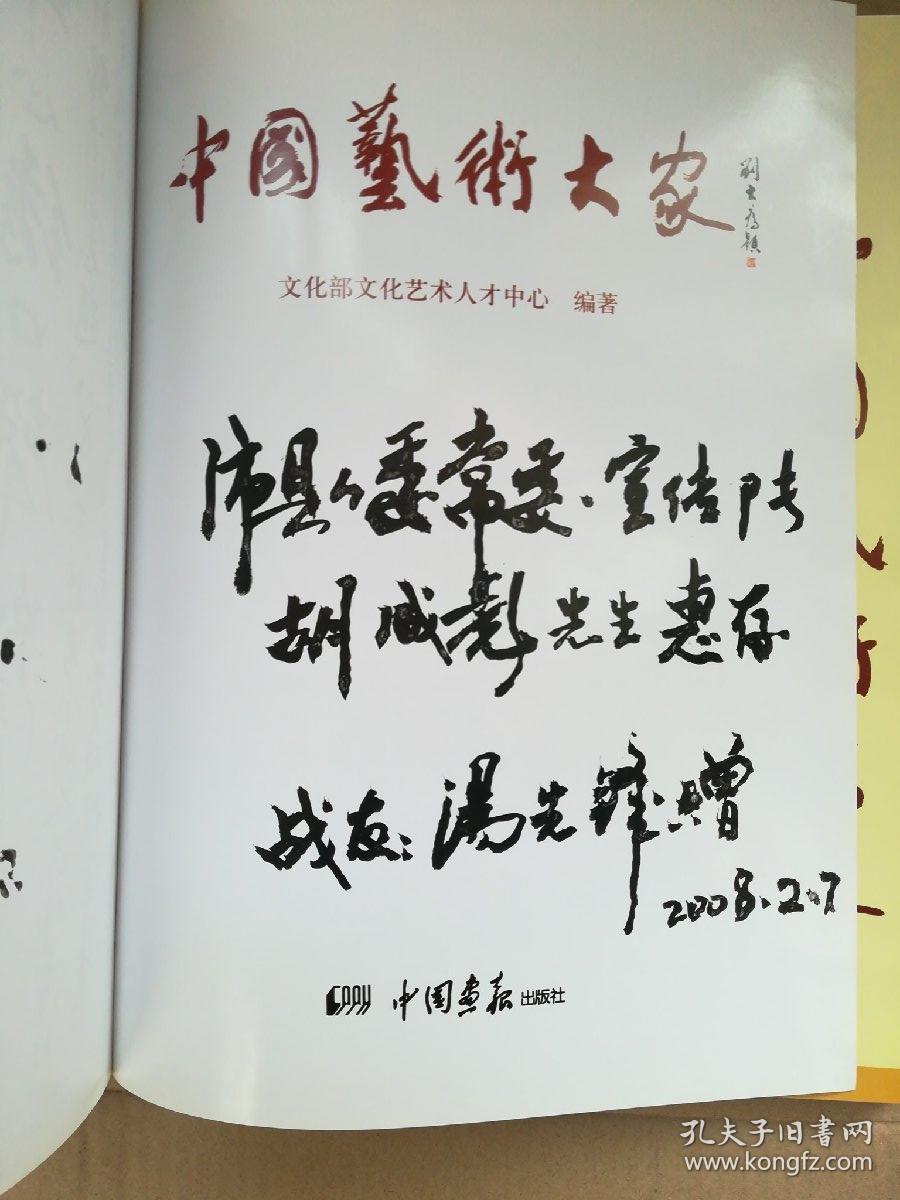 中國藝術大家
刘大为题
文化部文化艺术人才中心 编著
沛县县委常委·宣传部长
胡成彪先生惠存
战友:湯先鋒贈
2008.2.7
中国画报出版社
孔夫子旧书网
www.kongfz.com